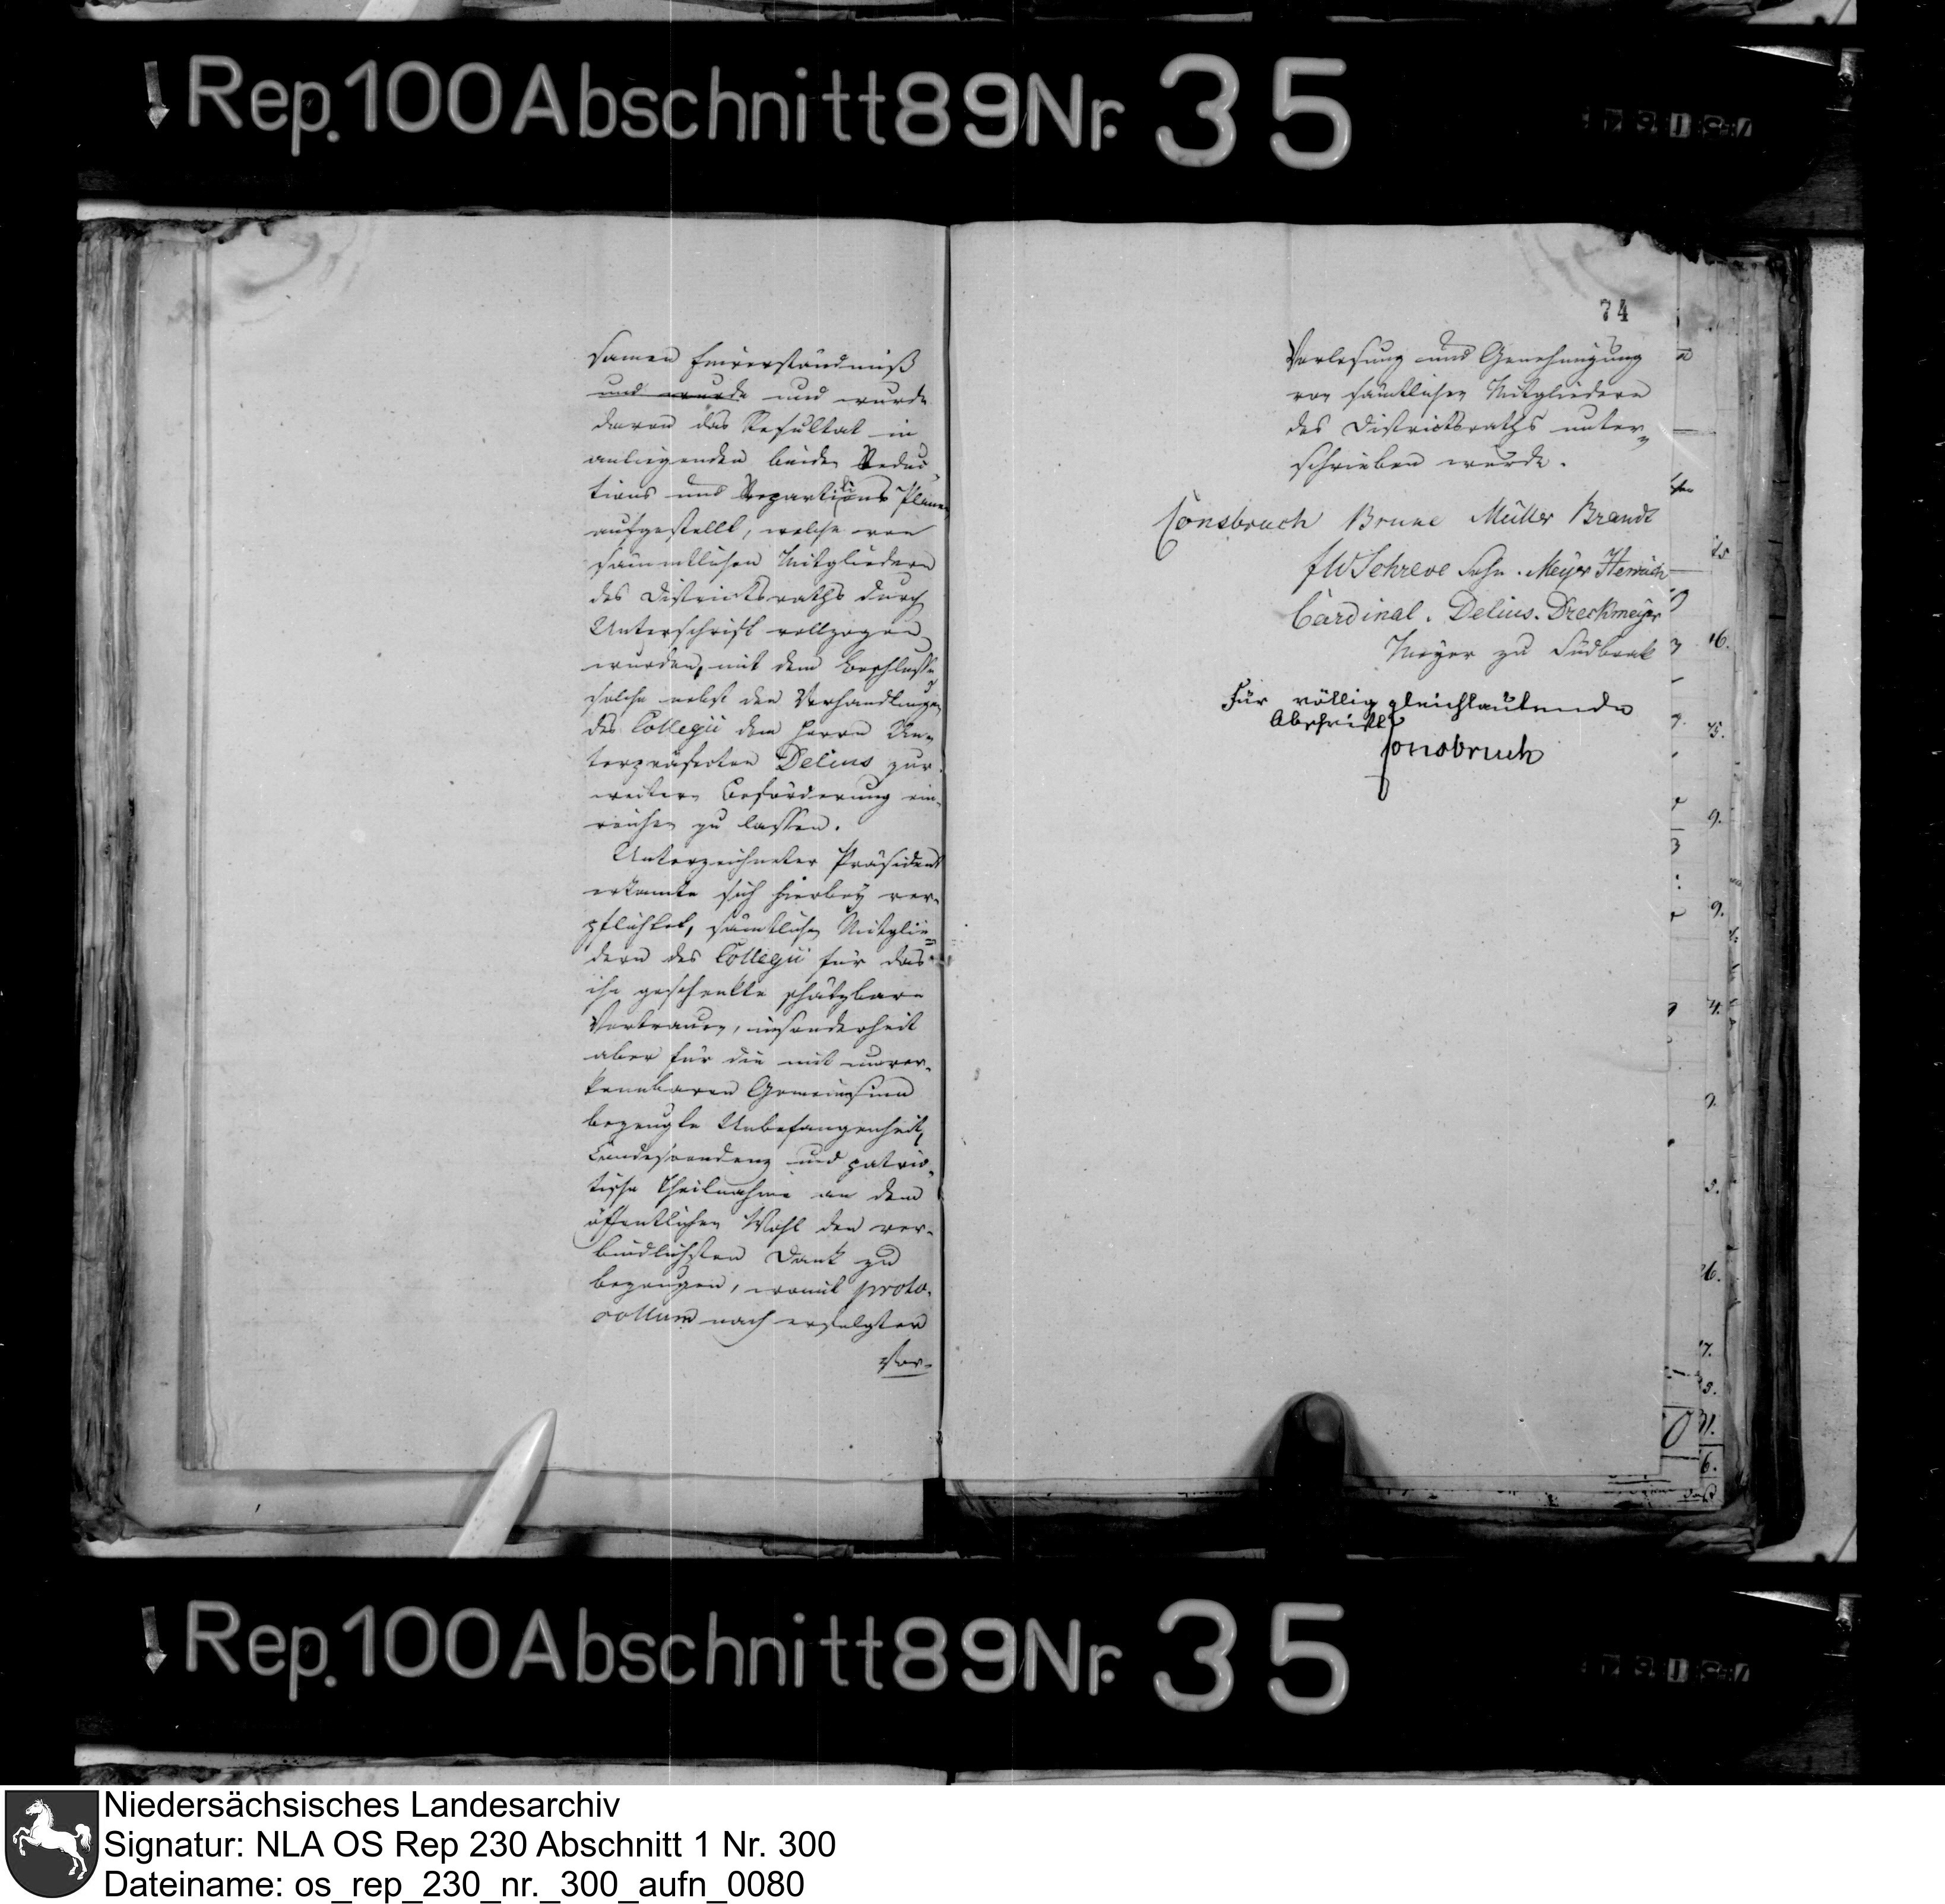 Rep. 100 Abschnitt 89 Nr. 35
samen Einverständniß
und wurde und wurde
davon das Resultat in
anliegenden beiden Reduc-
tions und Repartitions Plänen
aufgestellt, welche von
sämmtlichen Mitgliedern
des Districtsraths durch
Unterschrift vollzogen
wurden, mit dem Beschlusse
solche nebst den Verhandlungen
des Collegii dem Herrn Un-
terpräfecten Delius zur
weitern Beförderung ein-
reichen zu lassen.
Unterzeichneter Präsident
erkannte sich hierbey ver-
pflichtet, sämtlichen Mitglie-
dern des Collegii für das
ihm geschenkte schätzbare
Vertrauen, insonderheit
aber für die mit unver-
kennbaren Gemeinsinn
bezeugte Unbefangenheit,
und patrio-
tische Theilnahme an dem
öffentlichen Wohl den ver-
bindlichsten Dank zu
bezeugen, womit proto-
collum nach erfolgter
Vor-
74
Vorlesung und Genehmigung
von sämtlichen Mitgliedern
des Districtsraths unter-
schrieben wurde.
Consbruch Brune Müller Brandt
FW Schreve Meyer Henrich
Cardinal. Delius. Dreckmeyer
Meyer zu Südbrak
Für völlig gleichlautende
Abschrift
Consbruch
Rep. 100 Abschnitt 89 Nr. 35
Niedersächsisches Landesarchiv
Signatur: NLA OS Rep 230 Abschnitt 1 Nr. 300
Dateiname: os_rep_230_nr._300_aufn_0080